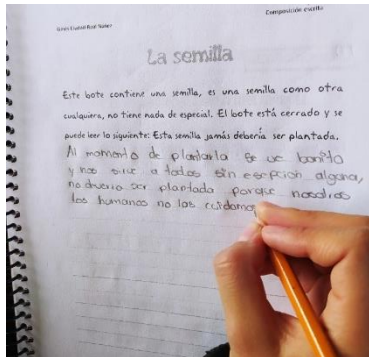 Composición escrita
La semilla
Este bote contiene una semilla, es una semilla como otra
cualquiera, no tiene nada de especial. El bote está cerrado y se
puede leer lo siguiente: Esta semilla jamás debería ser plantada.
Al momento de plantarla se ve bonito
y nos sirve a todos sin escepcion alguna,
no deveria ser plantada porque nosotros
los humanos no las cuidamo